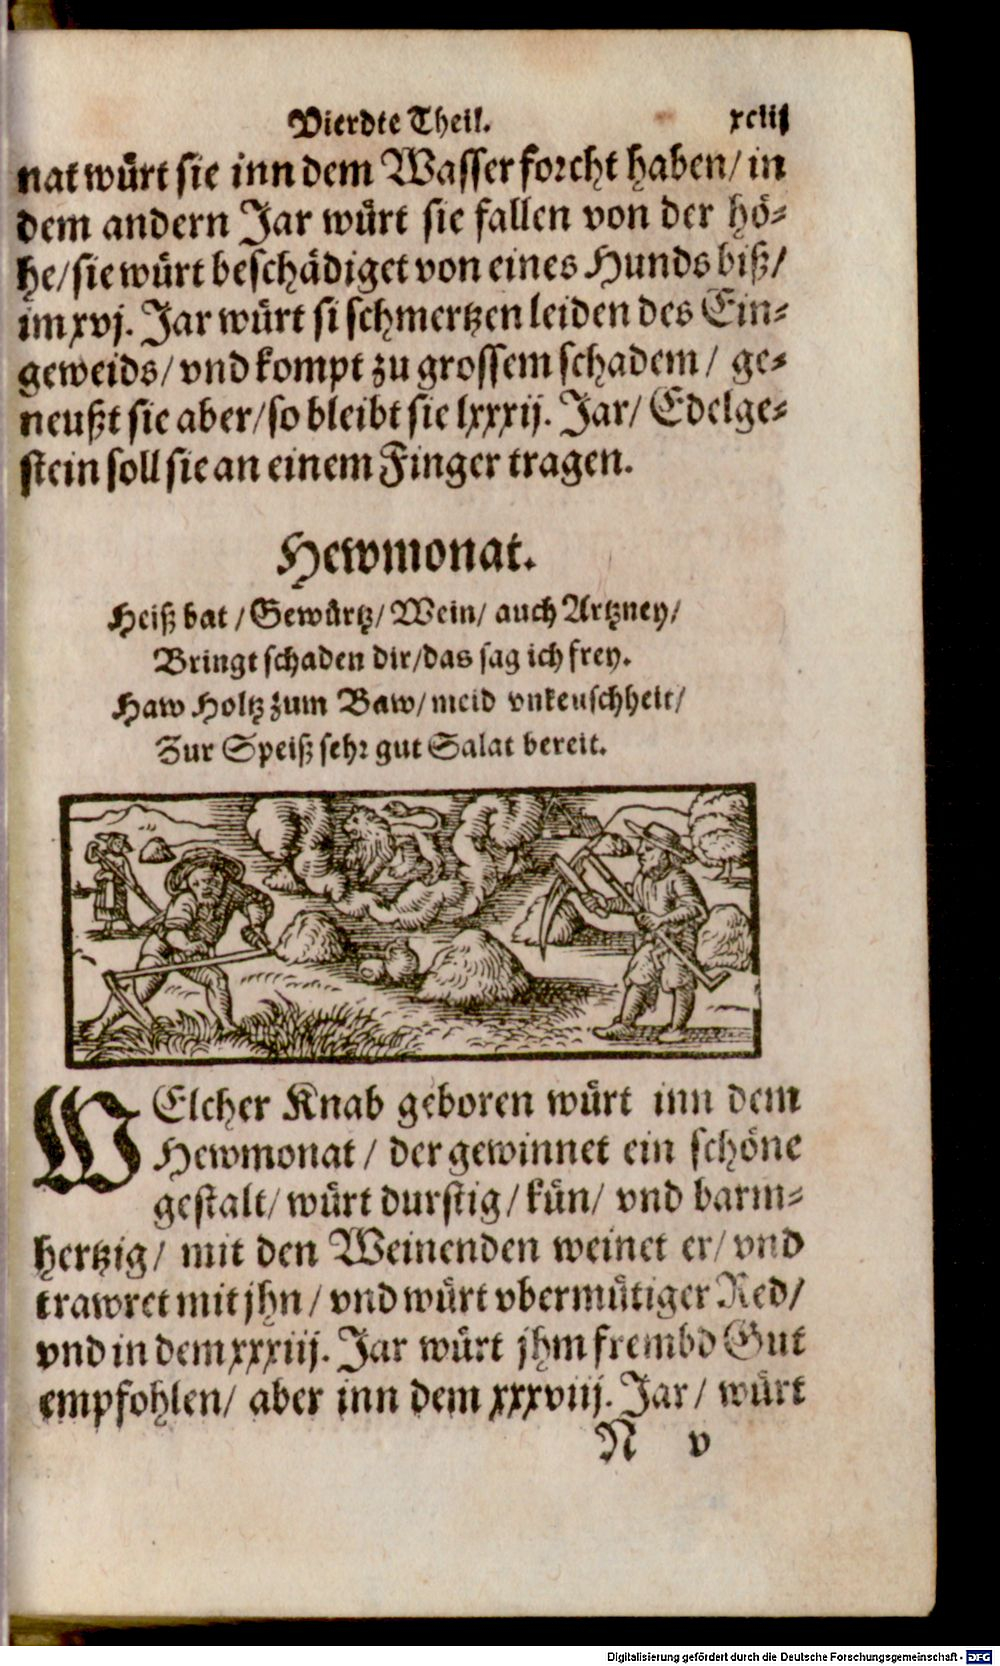 Vierdte Theil. xciij
nat würt sie inn dem Wasser forcht haben/ in
dem andern Jar würt sie fallen von der hö-
he/ sie würt beschädiget von eines Hunds biß/
im xvj. Jar würt si schmertzen leiden des Ein-
geweids/ vnd kompt zu grossem schadem/ ge-
neußt sie aber/ so bleibt sie lxxxij. Jar/ Edelge-
stein soll sie an einem Finger tragen.
Hewmonat.
Heiß bat/ Gewürtz/ Wein/ auch Artzney/
Bringt schaden dir/ das sag ich frey.
Haw Holtz zum Baw/ meid vnkeuschheit/
Zur Speiß sehr gut Salat bereit.
WElcher Knab geboren würt inn dem
Hewmonat/ der gewinnet ein schöne
gestalt/ würt durstig/ kün/ vnd barm-
hertzig/ mit den Weinenden weinet er/ vnd
trawret mit jhn/ vnd würt vbermütiger Red/
vnd in dem xxxiij. Jar würt jhm frembd Gut
empfohlen/ aber inn dem xxxviij. Jar/ würt
N v
Digitalisierung gefördert durch die Deutsche Forschungsgemeinschaft - DFG